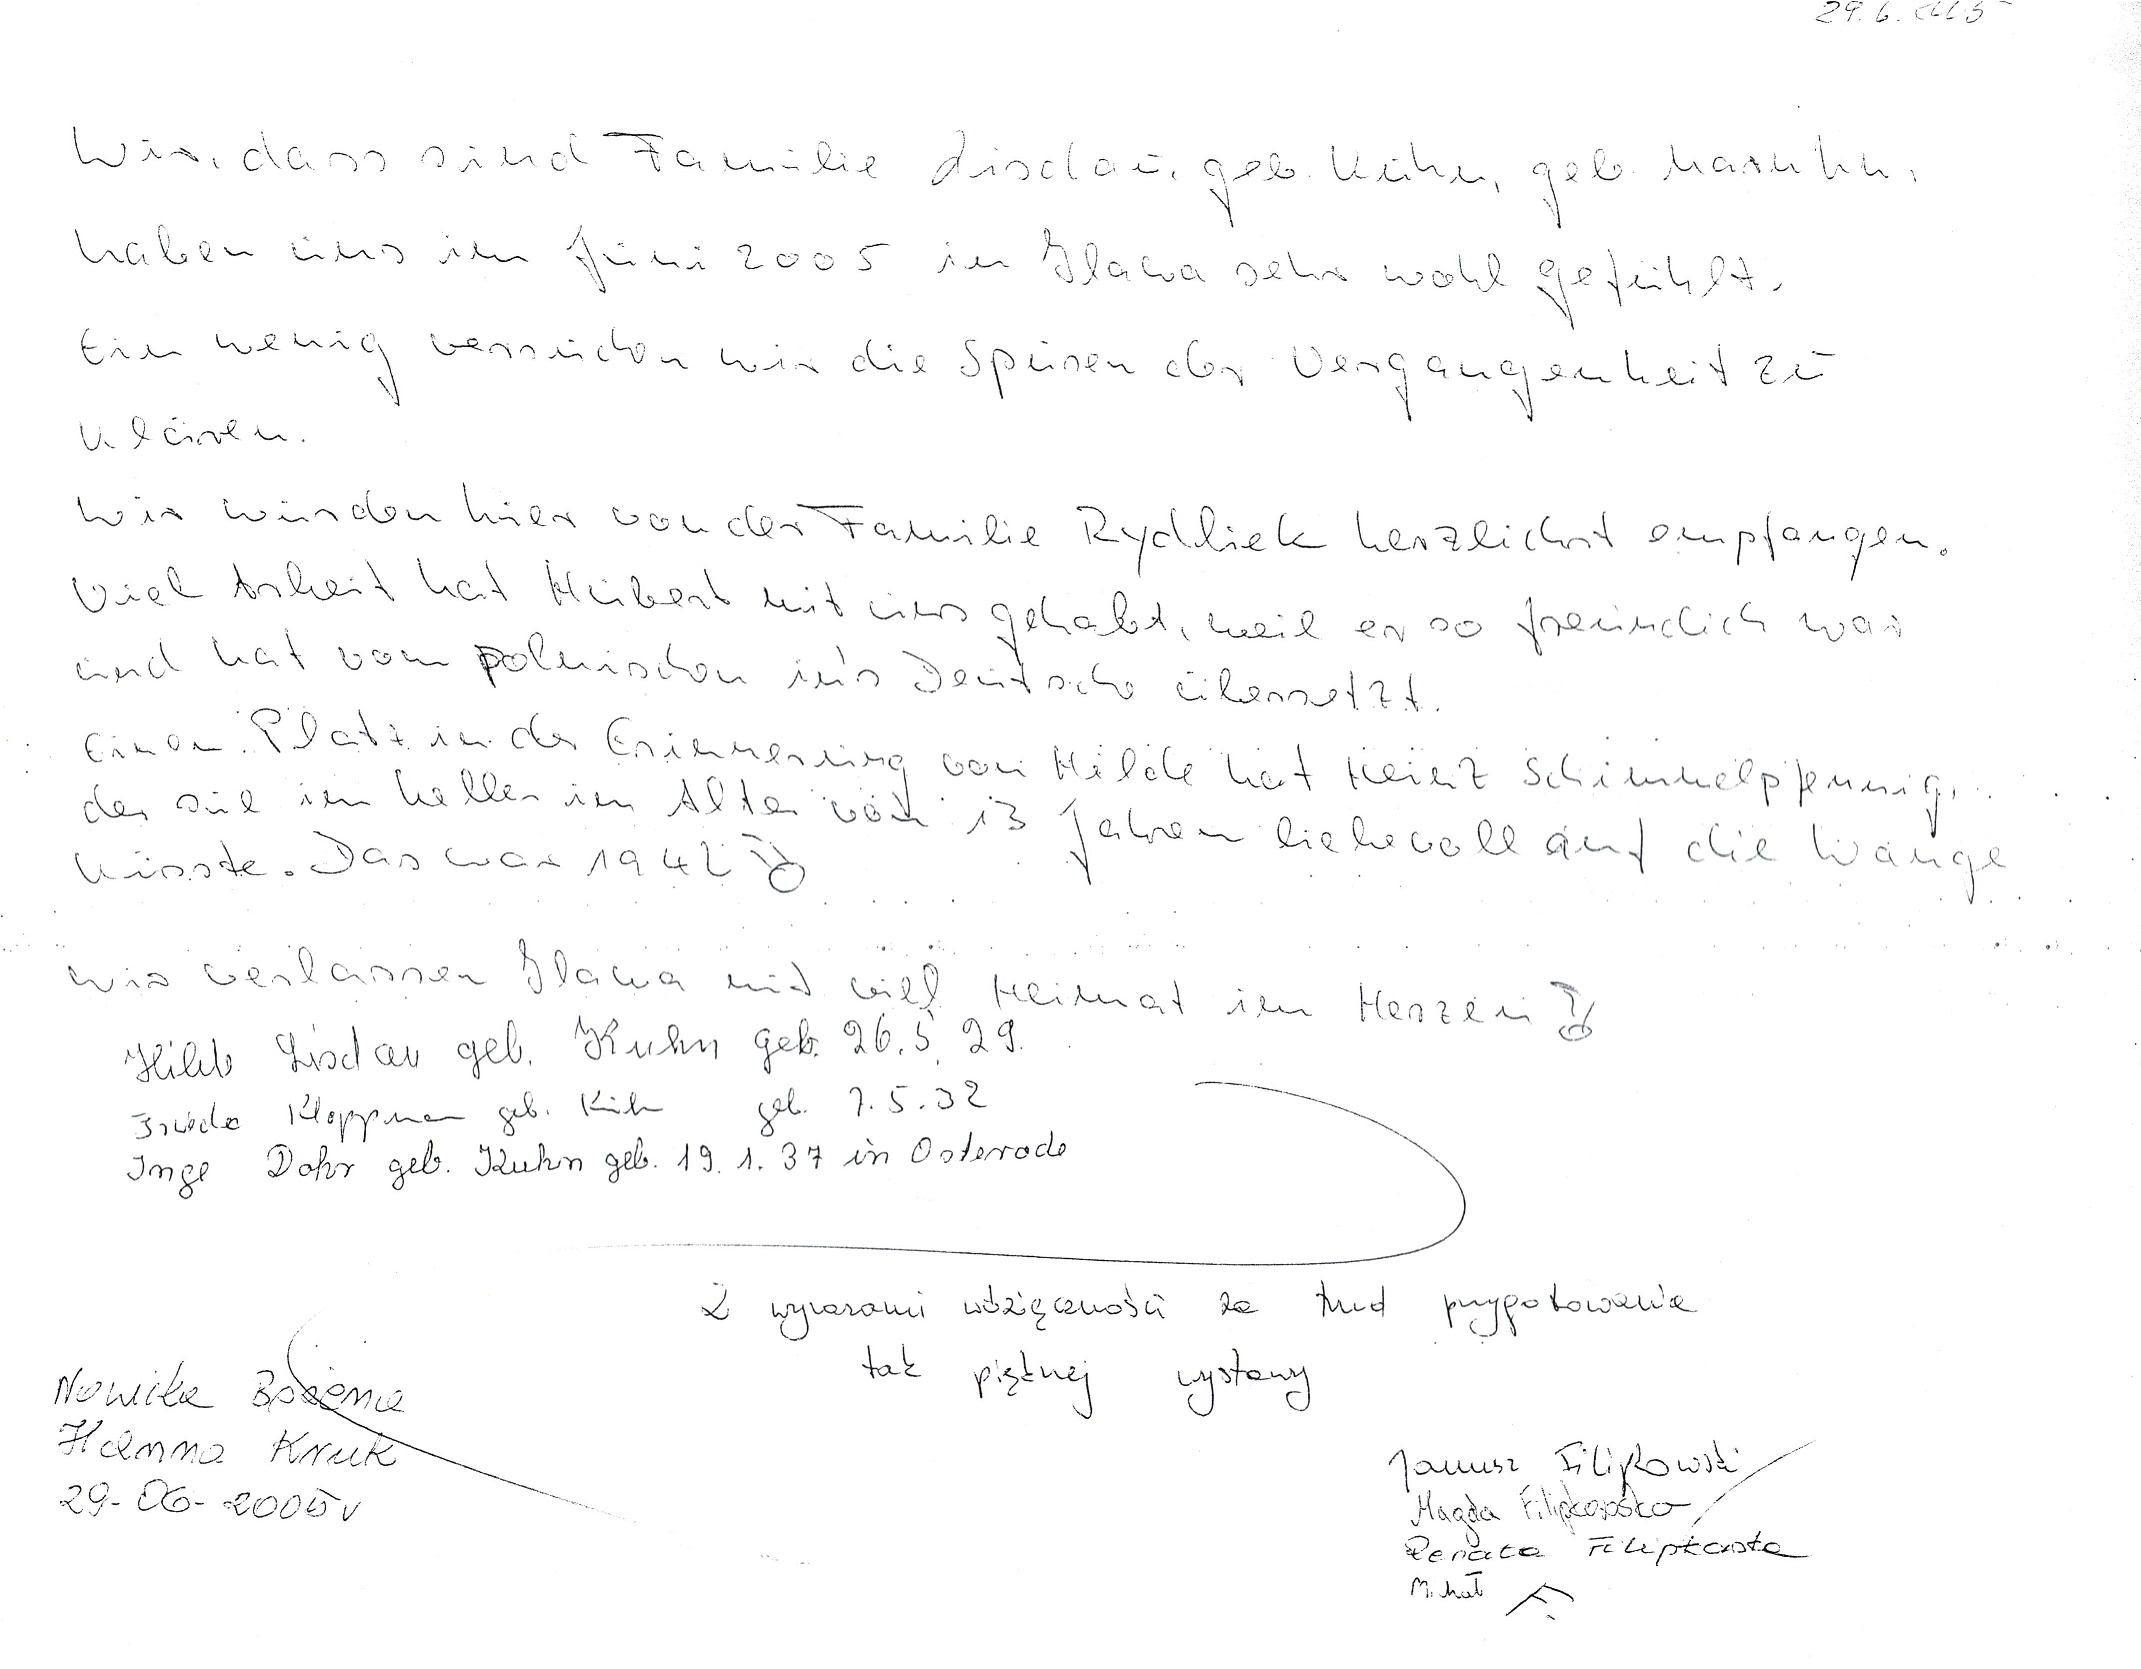 29.6.2005
Wir, dass sind Familie Lisdau, geb. Kuhn, geb. Maruhn,
haben uns im Juni 2005 in Ilawa sehr wohl gefühlt.
Ein wenig versuchen wir die Spuren der Vergangenheit zu
klären.
Wir wurden hier von der Familie herzlichst empfangen.
Viel Arbeit hat Hubert mit uns gehabt, weil er so freundlich war
und hat vom polnischen in's Deutsche übersetzt.
Einen Platz in der Erinnerung von Hilde hat Heinz Schimmelpfennig,
der sie im Keller im Alter von 13 Jahren liebevoll auf die Wange
küsste. Das war 1942!
Wir verlassen Ilawa mit viel Heimat im Herzen!
Hilde Lisdau geb. Kuhn geb. 26.5.29.
Frieda geb. Kuhn geb. 7.5.32
Inge Dohr geb. Kuhn geb. 19.1.37 in Osterode
Z wyrazami wdzięczności za trud przygotowania
tak pięknej wystawy
Nowicka Bożena
Hanna Kruk
29-06-2005r
Janusz Filipkowski
Magda Filipkowska
Renata Filipkowska
Michał F.